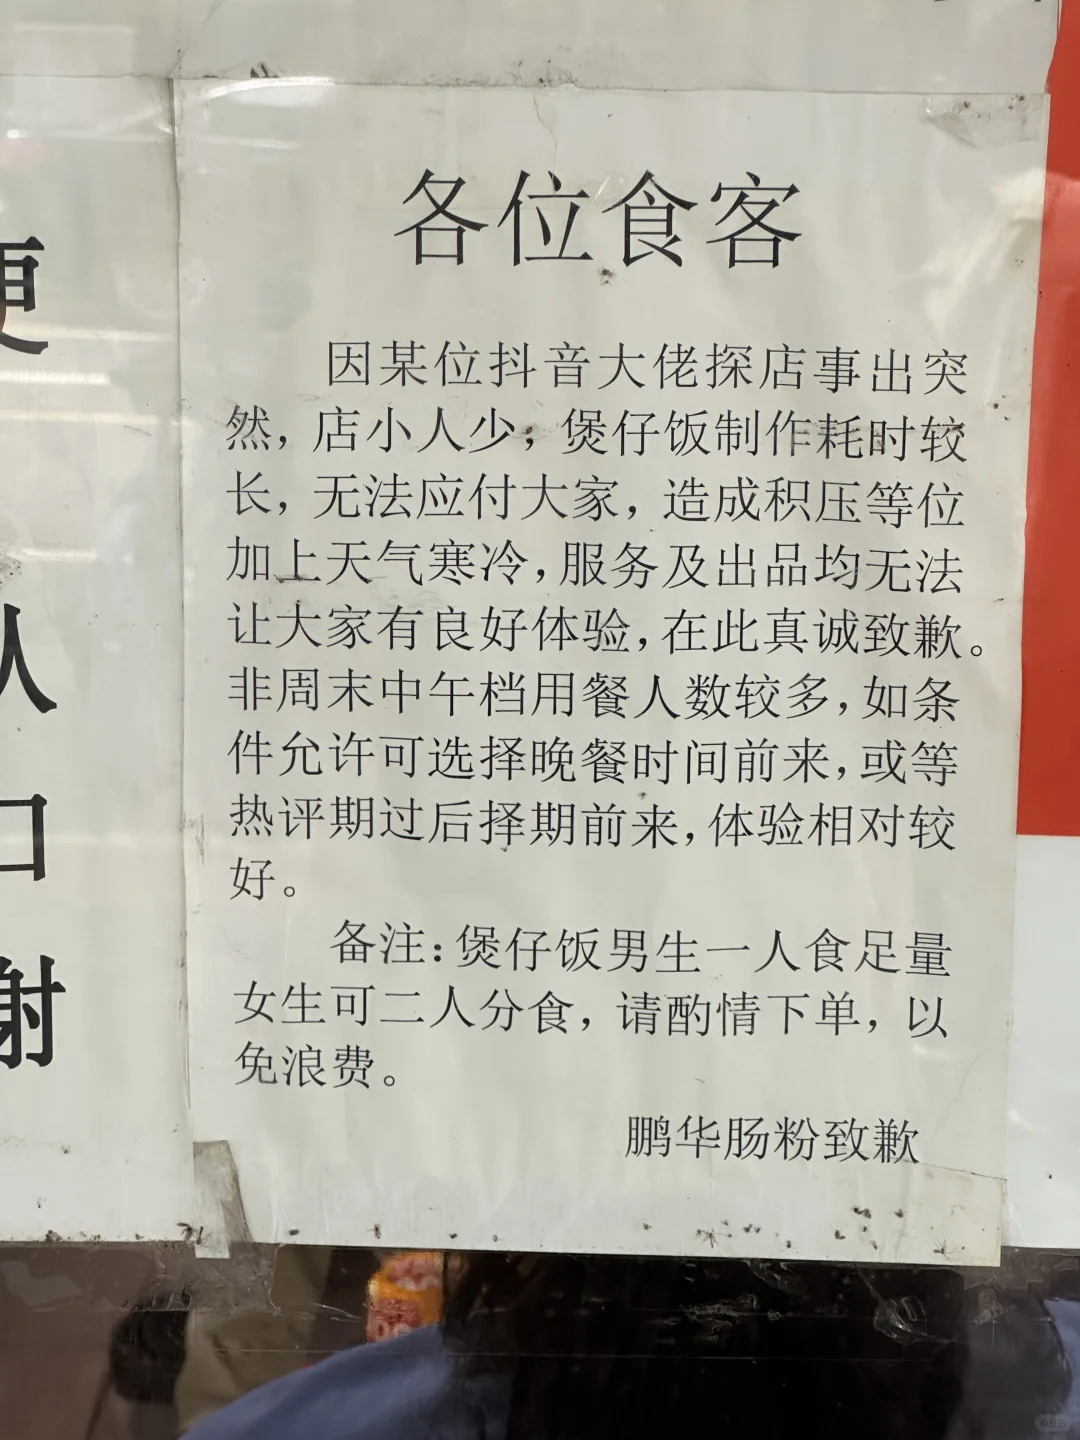 各位食客
因某位抖音大佬探店事出突
然，店小人少，煲仔饭制作耗时较
长，无法应付大家，造成积压等位
加上天气寒冷，服务及出品均无法
让大家有良好体验，在此真诚致歉。
非周末中午档用餐人数较多，如条
件允许可选择晚餐时间前来，或等
热评期过后择期前来，体验相对较
好。
备注：煲仔饭男生一人食足量
女生可二人分食，请酌情下单，以
免浪费。
鹏华肠粉致歉
人
口
谢
小红书